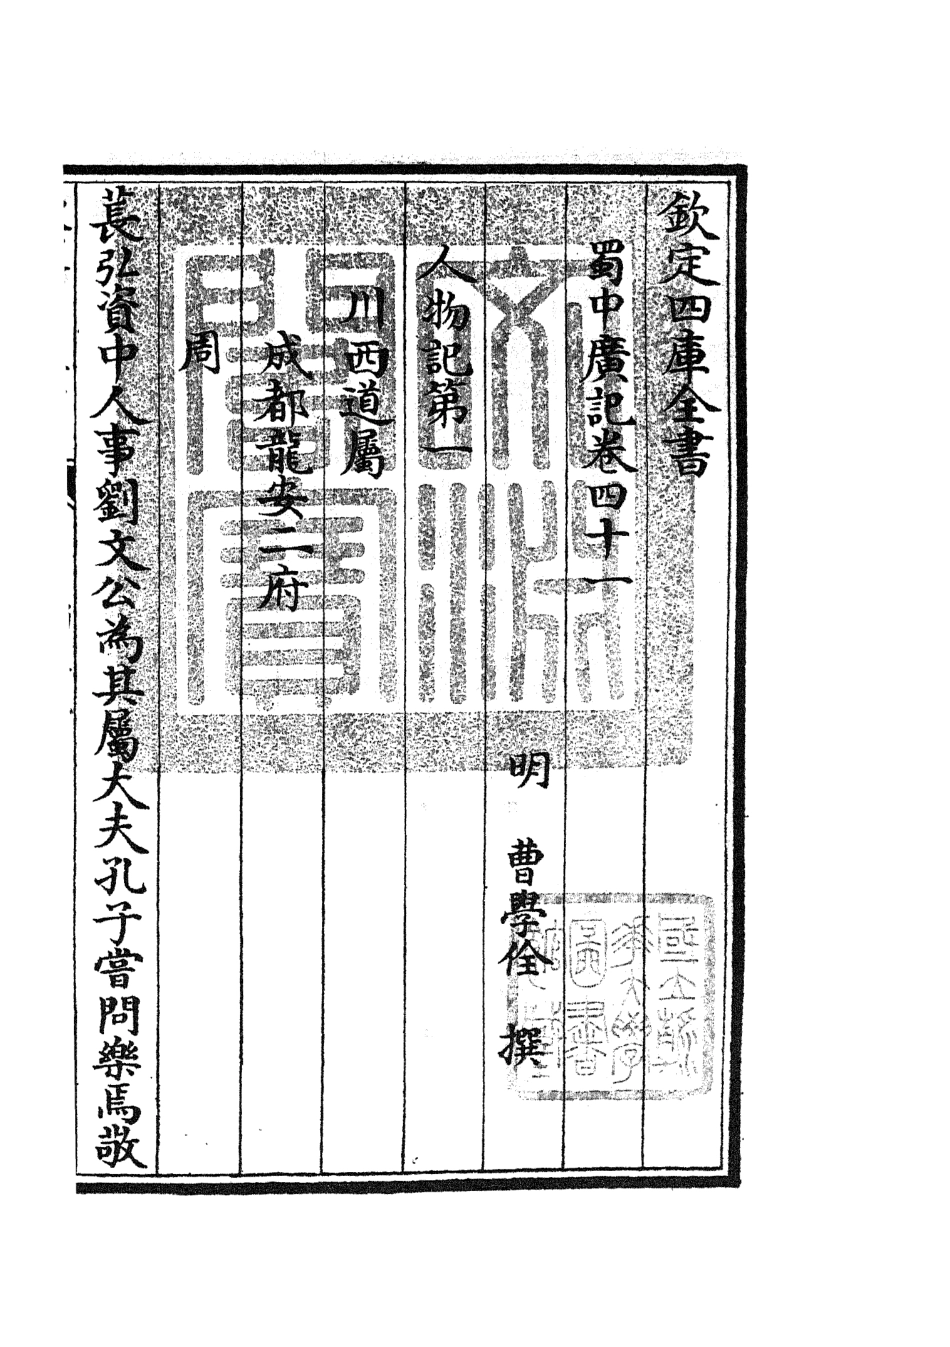 欽定四庫全書
蜀中廣記卷四十一
明　曹學佺　撰
人物記第一
川西道屬
成都龍安二府
周
萇弘資中人事劉文公為其屬大夫孔子嘗問樂焉敬